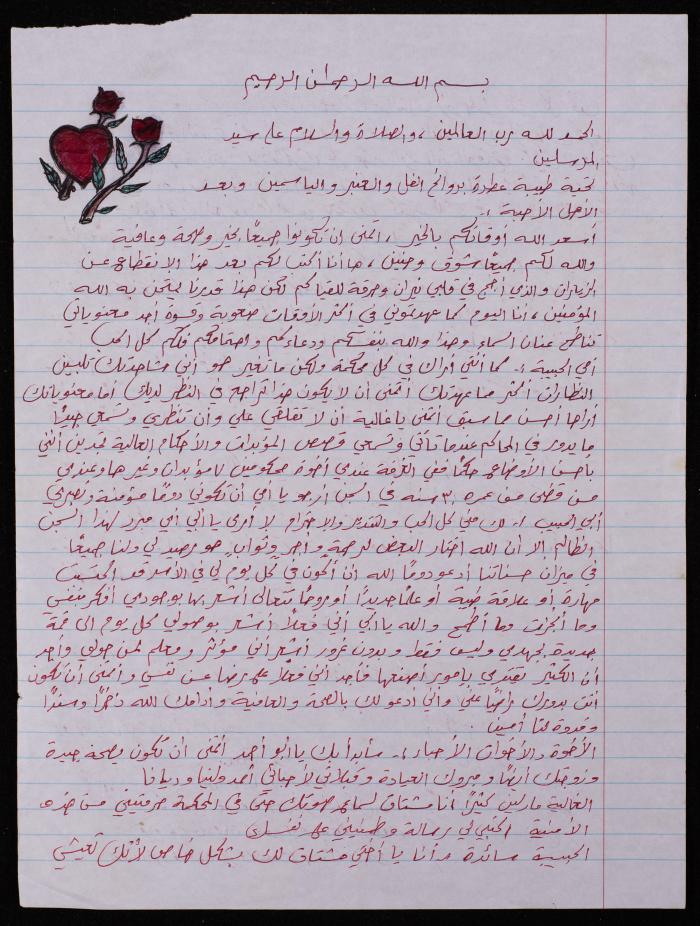 بسم الله الرحمن الرحيم
الحمد لله رب العالمين ، والصلاة والسلام على سيد
المرسلين
تحية طيبة عطرة بروائح الفل والعنبر والياسمين وبعد
الأهل الأحبة :ـ
أسعد الله أوقاتكم بالخير ، أتمنى ان تكونوا جميعًا بخير وصحة وعافية
والله لكم جميعًا بشوق وحنين ، ها أنا أكتب لكم بعد هذا الانقطاع عن
الزيارات والذي أجج في قلبي نيران وحرقة للقياكم لكن هذا قدرنا ليمتحن به الله
المؤمنين ، أنا اليوم كما عهدتموني في أكثر الأوقات صعوبة وقسوة أجد معنوياتي
تناطح عنان السماء وهذا والله بنفسكم ودعاءكم واهتمامكم فلكم كل الحب
أمي الحبيبة :ـ كما أنني أراك في كل محكمة ولكن ما تغير هو أني شاهدتك تلبسين
النظارات أكثر مما عهدتك أتمنى أن لا يكون هذا تراجع في النظر لديك أما معنوياتك
أراها أحسن مما سبق أتمنى يا غالية أن لا تقلقي علي وأن تنظري وتسمعي جيدًا
ما يدور في المحاكم عندما تأتي وتسمعي قصص المؤبدات والأحكام العالية تجدين أنني
بأحسن الأوضاع حكمًا ففي الغرفة عندي أخوة محكومين ١٧ مؤبدان وغيرها وعندي
من قضى من عمره ٣٠ سنه في السجن أرجو يا أمي أن تكوني دومًا مؤمنة وبصبري
أبي الحبيب :ـ لك مني كل الحب والتقدير والاحترام لا أرى يا أبي أي مبرر لهذا السجن
الظالم إلا أن الله اختار البعض لرحمة وأجر وثواب هو رصيد لي ولنا جميعًا
في ميزان حسناتنا أدعو دومًا الله أن أكون في كل يوم لي في الأسر قد اكتسبت
مهارة أو علاقة طيبة أو علمًا جديدًا أو روحًا تتعالى أشعر بها بوجودي أفكر بنفسي
وما أنجزت وما أطمح والله يا أبي أني فعلًا أشعر بوصولي كل يوم الى قمة
جديدة بجهدي وليس فقط وبدون غرور أشعر أني مؤثر ومعلم لمن حولي وأجد
أن الكثير يقتدي بأمور أصنعها فأجد أني فعلًا على رضا عن نفسي وأتمنى أن تكون
أنت بدورك راضيًا علي وأني أدعو لك بالصحة والعافية وأدامك الله ذخرًا وسندًا
وقدوة لنا أمين .
الأخوة والأخوات الأحباء :ـ سأبدأ بك يا أبو أحمد أتمنى أن تكون بصحة جيدة
وزوجتك أيضًا ومبروك العيادة وقبلاتي لأحبائي أحمد ولينا وديانا
الغالية مارلين كثيرًا أنا مشتاق لسماع صوتك حتى في المحكمة حرمتيني من هذه
الأمنية اكتبي لي رسالة وطمنيني على نفسك
الحبيبة سائدة وأنا يا أختي مشتاق لك بشكل خاص لأنك تعيشي